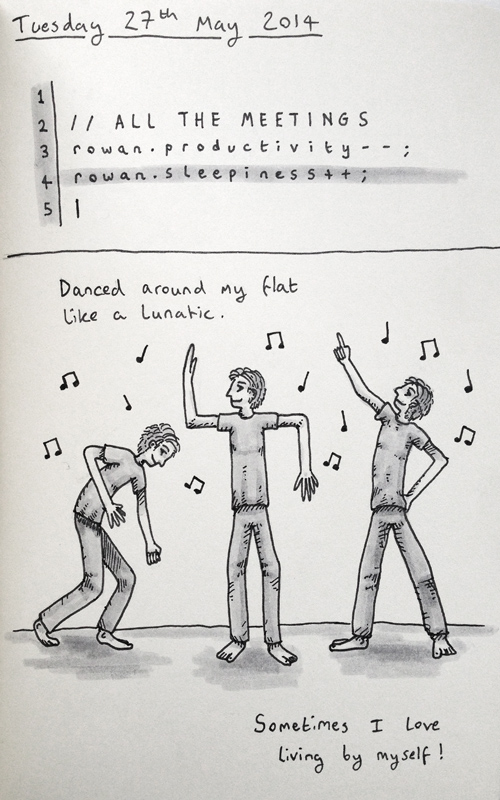 Tuesday 27th May 2014
1
2 // ALL THE MEETINGS
3 rowan.productivity--;
4 rowan.sleepiness++;
5 |
Danced around my flat
like a lunatic.
Sometimes I love
living by myself!